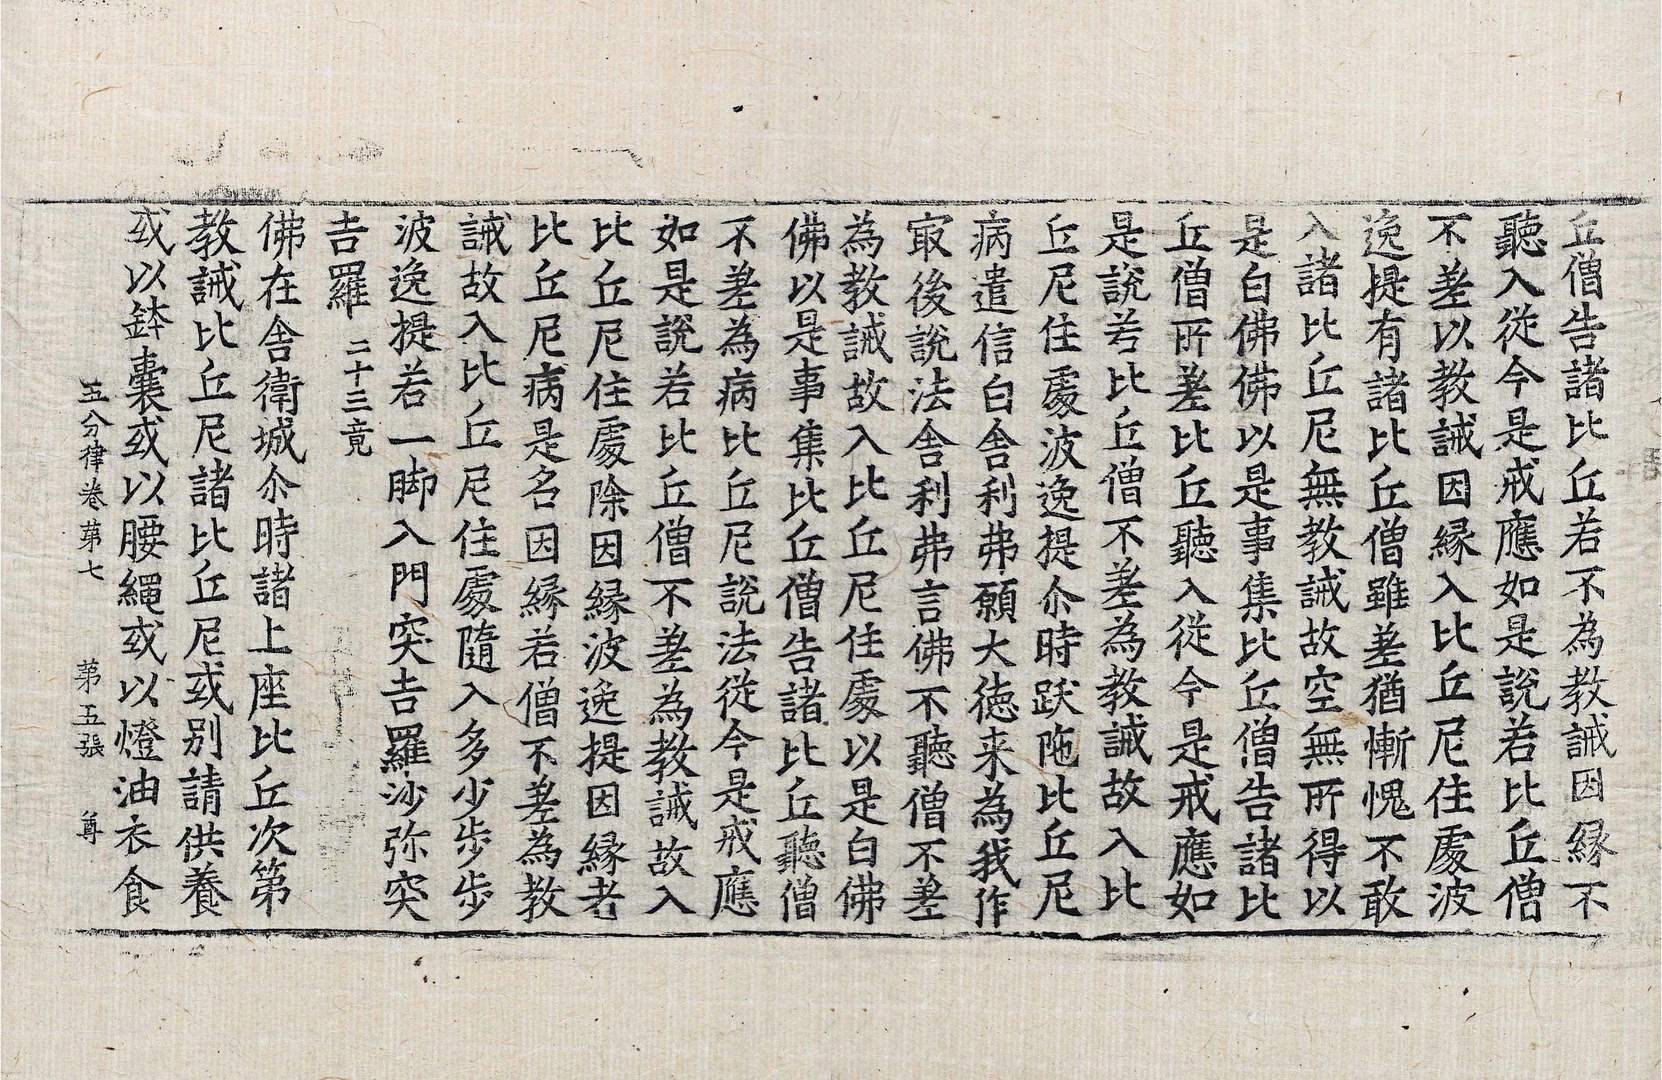 丘僧告諸比丘若不為教誡因縁不
聽入從今是戒應如是說若比丘僧
不差以教誡因縁入比丘尼住處波
逸提有諸比丘僧雖差猶慚愧不敢
入諸比丘尼無教誡故空無所得以
是白佛佛以是事集比丘僧告諸比
丘僧所差比丘聽入從今是戒應如
是說若比丘僧不差為教誡故入比
丘尼住處波逸提尒時跋陁比丘尼
病遣信白舎利弗願大徳来為我作
㝡後說法舎利弗言佛不聽僧不差
為教誡故入比丘尼住處以是白佛
佛以是事集比丘僧告諸比丘聽僧
不差為病比丘尼說法從今是戒應
如是說若比丘僧不差為教誡故入
比丘尼住處除因縁波逸提因縁者
比丘尼病是名因縁若僧不差為教
誡故入比丘尼住處隨入多少步步
波逸提若一脚入門突吉羅沙弥突
吉羅 二十三竟
佛在舎衛城尒時諸上座比丘次第
教誡比丘尼諸比丘尼或別請供養
或以鉢囊或以腰繩或以燈油衣食
五分律卷苐七 苐五張 尊